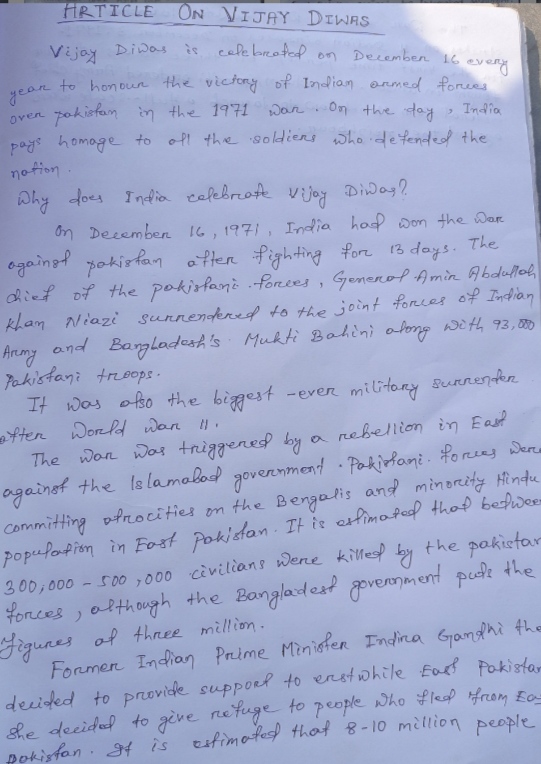 ARTICLE ON VIJAY DIWAS
Vijay Diwas is celebrated on December 16 every
year to honour the victory of Indian armed forces
over pakistan in the 1971 war. On the day, India
pays homage to all the soldiers who defended the
nation.
Why does India celebrate Vijay Diwas?
On December 16, 1971, India had won the war
against pakistan after fighting for 13 days. The
chief of the pakistani forces, General Amir Abdullah
Khan Niazi surrendered to the joint forces of Indian
Army and Bangladesh's Mukti Bahini along with 93,000
Pakistani troops.
It was also the biggest-ever military surrender
after World War II.
The war was triggered by a rebellion in East
against the Islamabad government. Pakistani forces were
committing atrocities on the Bengalis and minority Hindu
population in East Pakistan. It is estimated that between
300,000 - 500,000 civilians were killed by the pakistan
forces, although the Bangladesh government puts the
figures at three million.
Former Indian Prime Minister Indira Gandhi the
decided to provide support to erstwhile East Pakistan
She decided to give refuge to people who fled from Ea
Pakistan. It is estimated that 8-10 million people